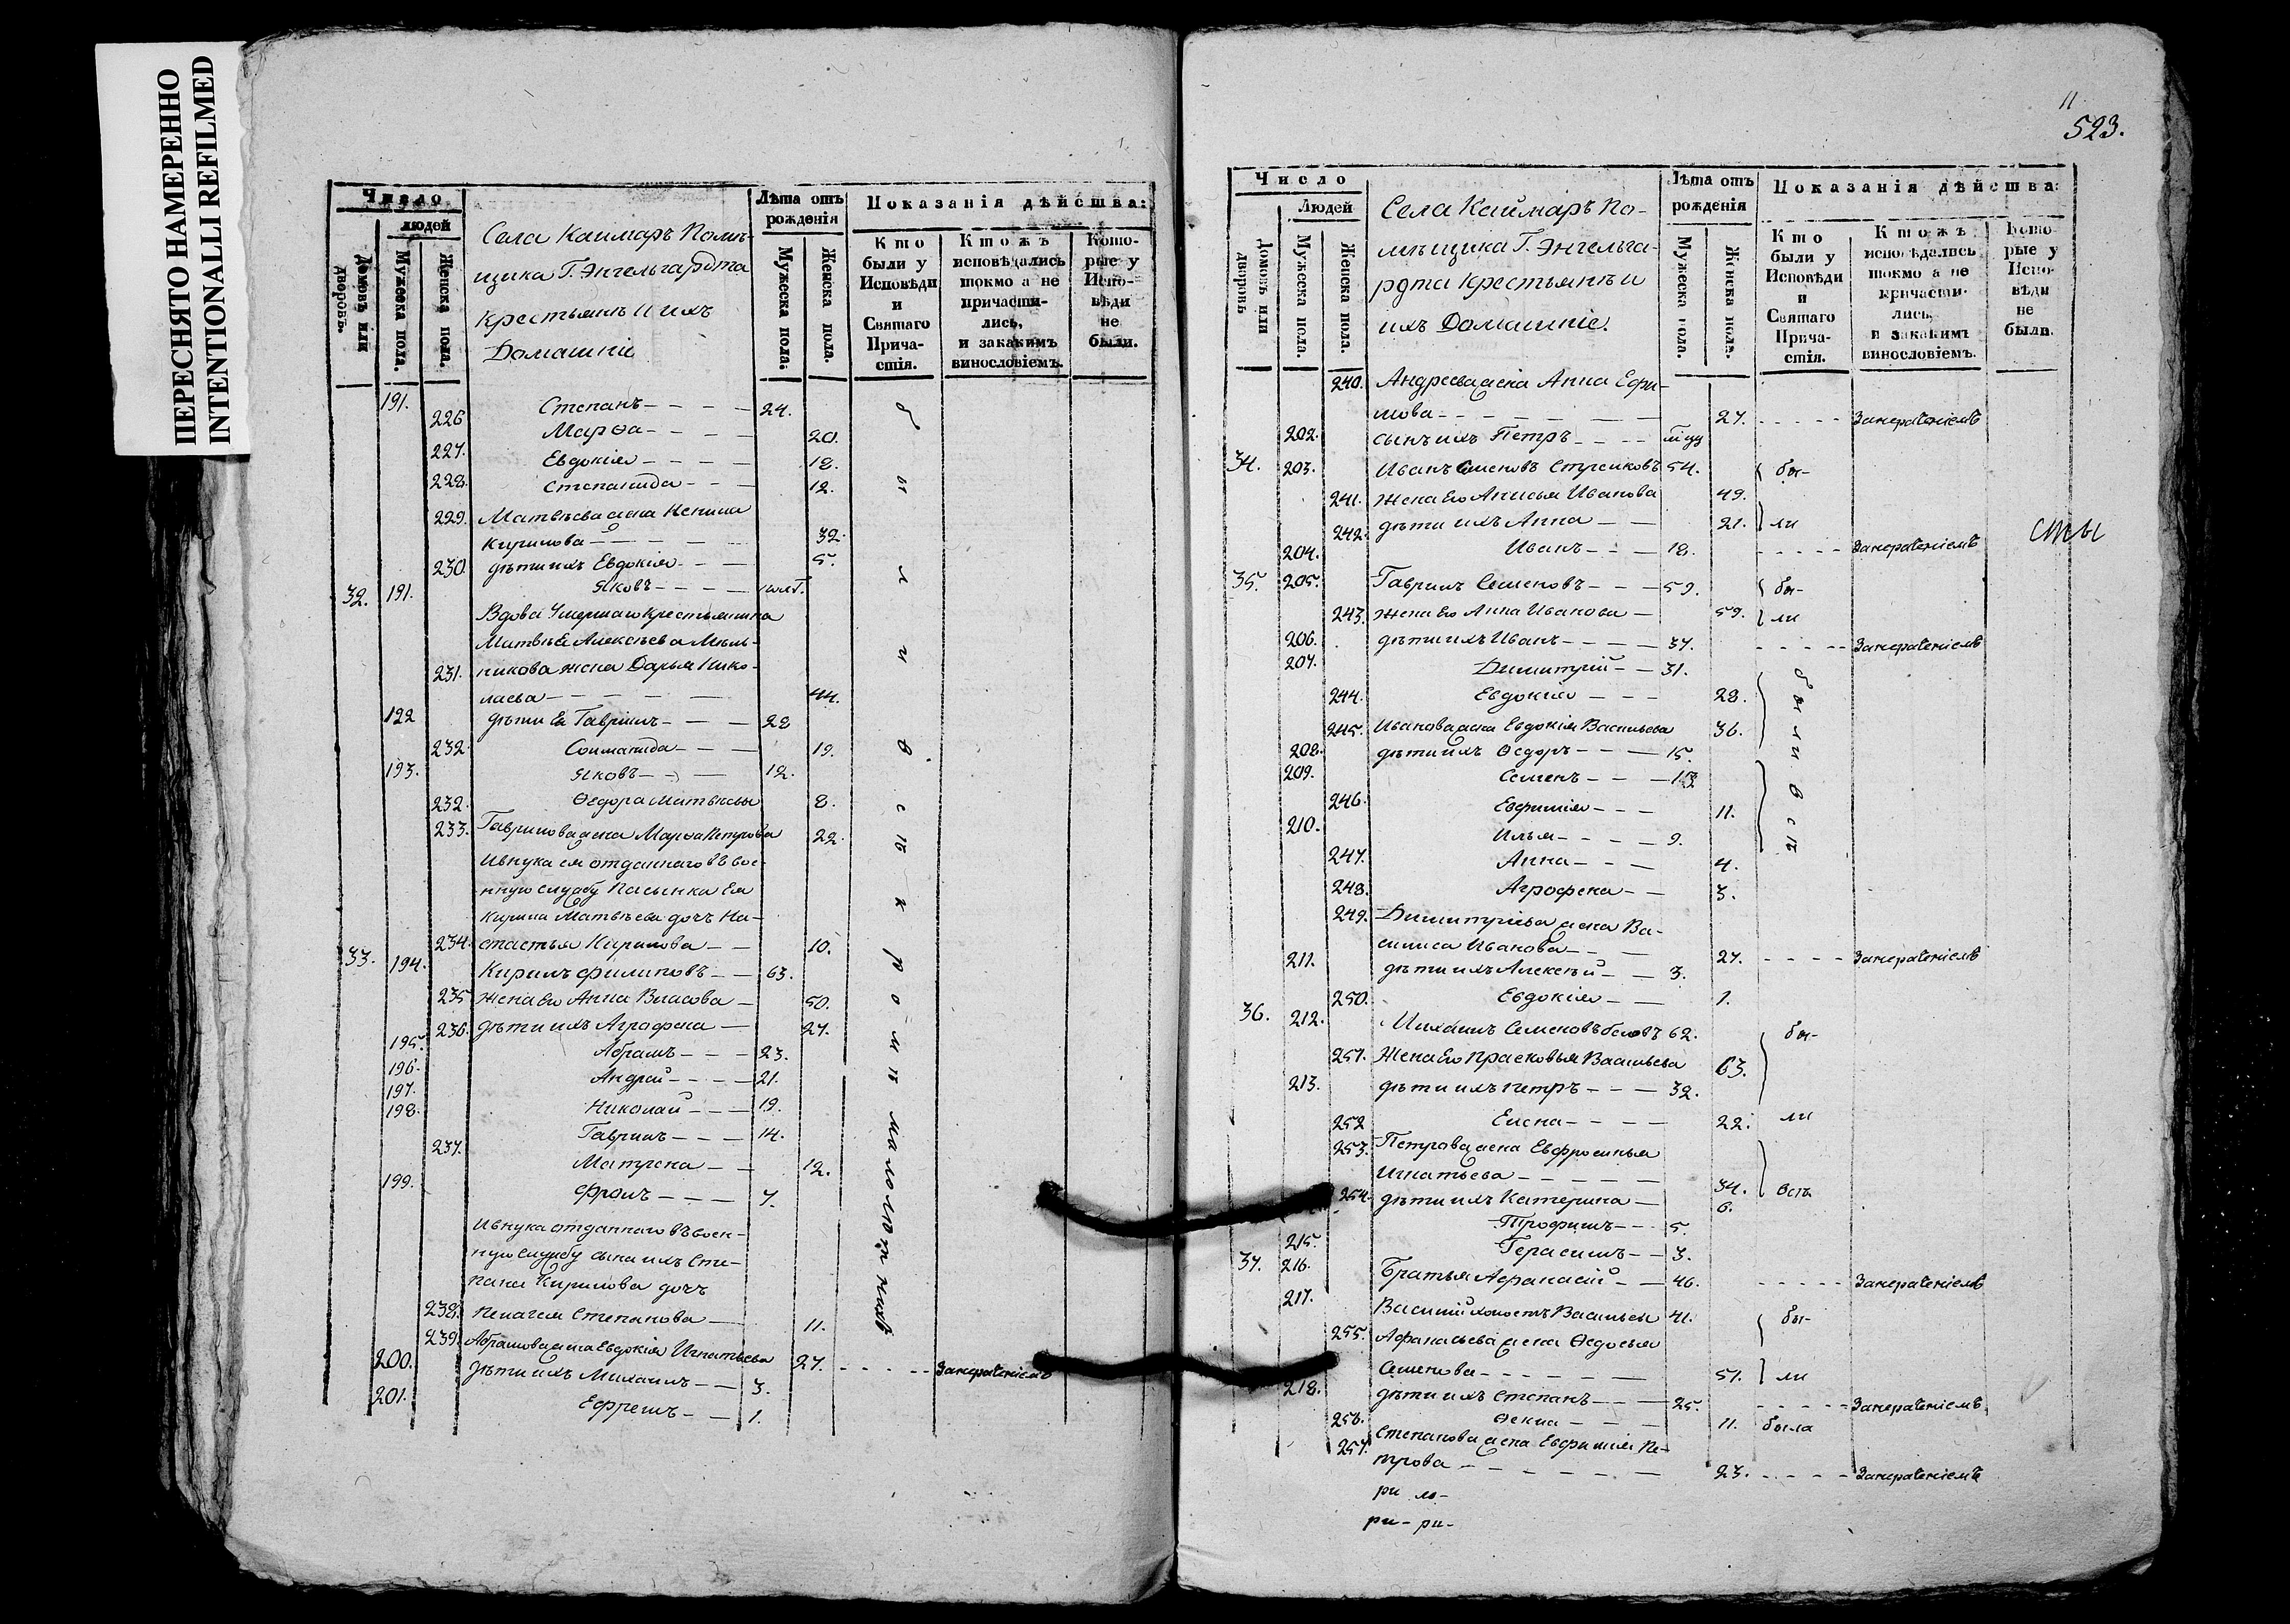 ПЕРЕСНЯТО НАМЕРЕННО
INTENTIONALLI REFILMED
Число
людей
Домовъ или дворовъ.
Мужеска пола.
Женска пола.
Села Каимаръ Помѣ-
щика Г. Энгельгардта
крестьянъ и ихъ
Домашніе
Лѣта отъ рожденія
Мужеска пола.
Женска пола.
Показанія дѣйства:
Кто были у Исповѣди и Святаго Прича-стія.
Ктожъ исповѣдались токмо а не причасти-лись, и закакимъ винословіемъ.
Кото-рые у Испо-вѣди не были.
191. Степанъ - - - - 24.
226 Марѳа - - - - 20.
227. Евдокія - - - - 18.
228. Степанида - - - 12.
229. Матвѣева жена
Кирилова - - - - - 32.
230. дѣти ихъ Евдокія - - - 5.
32. 191. Яковъ - - - -
Вдова Умершаго крестьянина
Матвѣя Алексѣева Мель-
231. никова жена Дарья Нико-
лаева - - - - - 44.
122 дѣти Ея Гаврилъ - - - 28
232. Соломанида - - - 19.
193. Яковъ - - - 12.
232. Ѳедора Матвѣевы 8.
233. Гаврилова жена Марѳа Петрова 22.
Ивнука ея отданнаго въ вое-
нную службу пасынка Ея
Кирила Матвѣева дочь На-
234. стасья Кирилова - - 10.
33. 194. Кирилъ Филиповъ - - 63.
235 жена Ево Анна Власова - 50.
236. дѣти ихъ Аграфена - 27.
195. Абрамъ - - - 23.
196. Андрей - - - - 21.
197. Николай - - - 19.
198. Гаврилъ - - - 14.
237. Матрена - - 12.
199. Фролъ - - - 7.
Ивнука отданнаго въ воен-
ную службу сына ихъ Сте-
пана Кирилова дочь
238. Пелагея Степанова - 11.
239. Абрамова жена Евдокія Игнатьева 27. - - - - - Занерадѣніемъ
200. дѣти ихъ Михаилъ - - 3.
201. Ефремъ - - 1.
были всѣ кромѣ малолѣтнихъ
11
523.
Число
Людей
Домовъ или дворовъ
Мужеска пола.
Женска пола.
Села Каймаръ По-
мѣщика Г. Энгельга-
рдта крестьянъ и
ихъ Домашніе.
Лѣта отъ рожденія
Мужеска пола.
Женска пола.
Показанія дѣйства:
Кто были у Исповѣди и Святаго Прича-стія.
Ктожъ исповѣдались токмо а не причасти-лись, и закакимъ винословіемъ.
Кото-рые у Испо-вѣди не были.
240. Андреева жена Анна Ефи-
мова - - - - - - 27. - - - - - Занерадѣніемъ
202. сынъ ихъ Петръ - - - -
34. 203. Иванъ Семеновъ 54. бы-
241. жена Ево Анисья Иванова 49.
242. дѣти ихъ Анна - - 21. ли
204. Иванъ - - - 18. - - - - - Занерадѣніемъ
35. 205. Гаврилъ Семеновъ - - - 59. бы-
243. жена Ево Анна Иванова - 59. ли
206. дѣти ихъ Иванъ - - - - 37. - - - - - Занерадѣніемъ
207. Димитрій - - 31.
244. Евдокія - - - 28.
245. Иванова жена Евдокія Васильева 36.
208. дѣти ихъ Ѳедоръ - - - 15.
209. Семенъ - - - 13.
246. Евфимія - - - 11.
210. Илья - - - - 9.
247. Анна - - - 4.
248. Агрофена - - 3.
249. Димитріева жена Ва-
силиса Иванова - - - 27. - - - - - Занерадѣніемъ
211. дѣти ихъ Алексѣй - - 3.
250. Евдокія - - 1.
были всѣ
36. 212. Михаилъ Семеновъ Беловъ 62. бы-
251. Жена Ево Прасковья Васильева 63.
213. дѣти ихъ Петръ - - - 32.
252 Елена - - - - 22. ли
253. Петрова жена Евфросинья
Игнатьева - - - - - 34. всѣ
254. дѣти ихъ Катерина - 6.
Трофимъ - - 5.
215. Герасимъ - - 3.
37. 216. Братья Афанасій - - 46. - - - - - Занерадѣніемъ
217. Василій холостъ Васильевы 41. бы-
255. Афанасьева жена Ѳедосья
Семенова - - - - - - 51. ли
218. дѣти ихъ Степанъ - - - 25. - - - - - Занерадѣніемъ
256. Ѳекла - - - 11. была
257. Степанова жена Евфимія Пе-
трова - - - - - - 23. - - - - Занерадѣніемъ